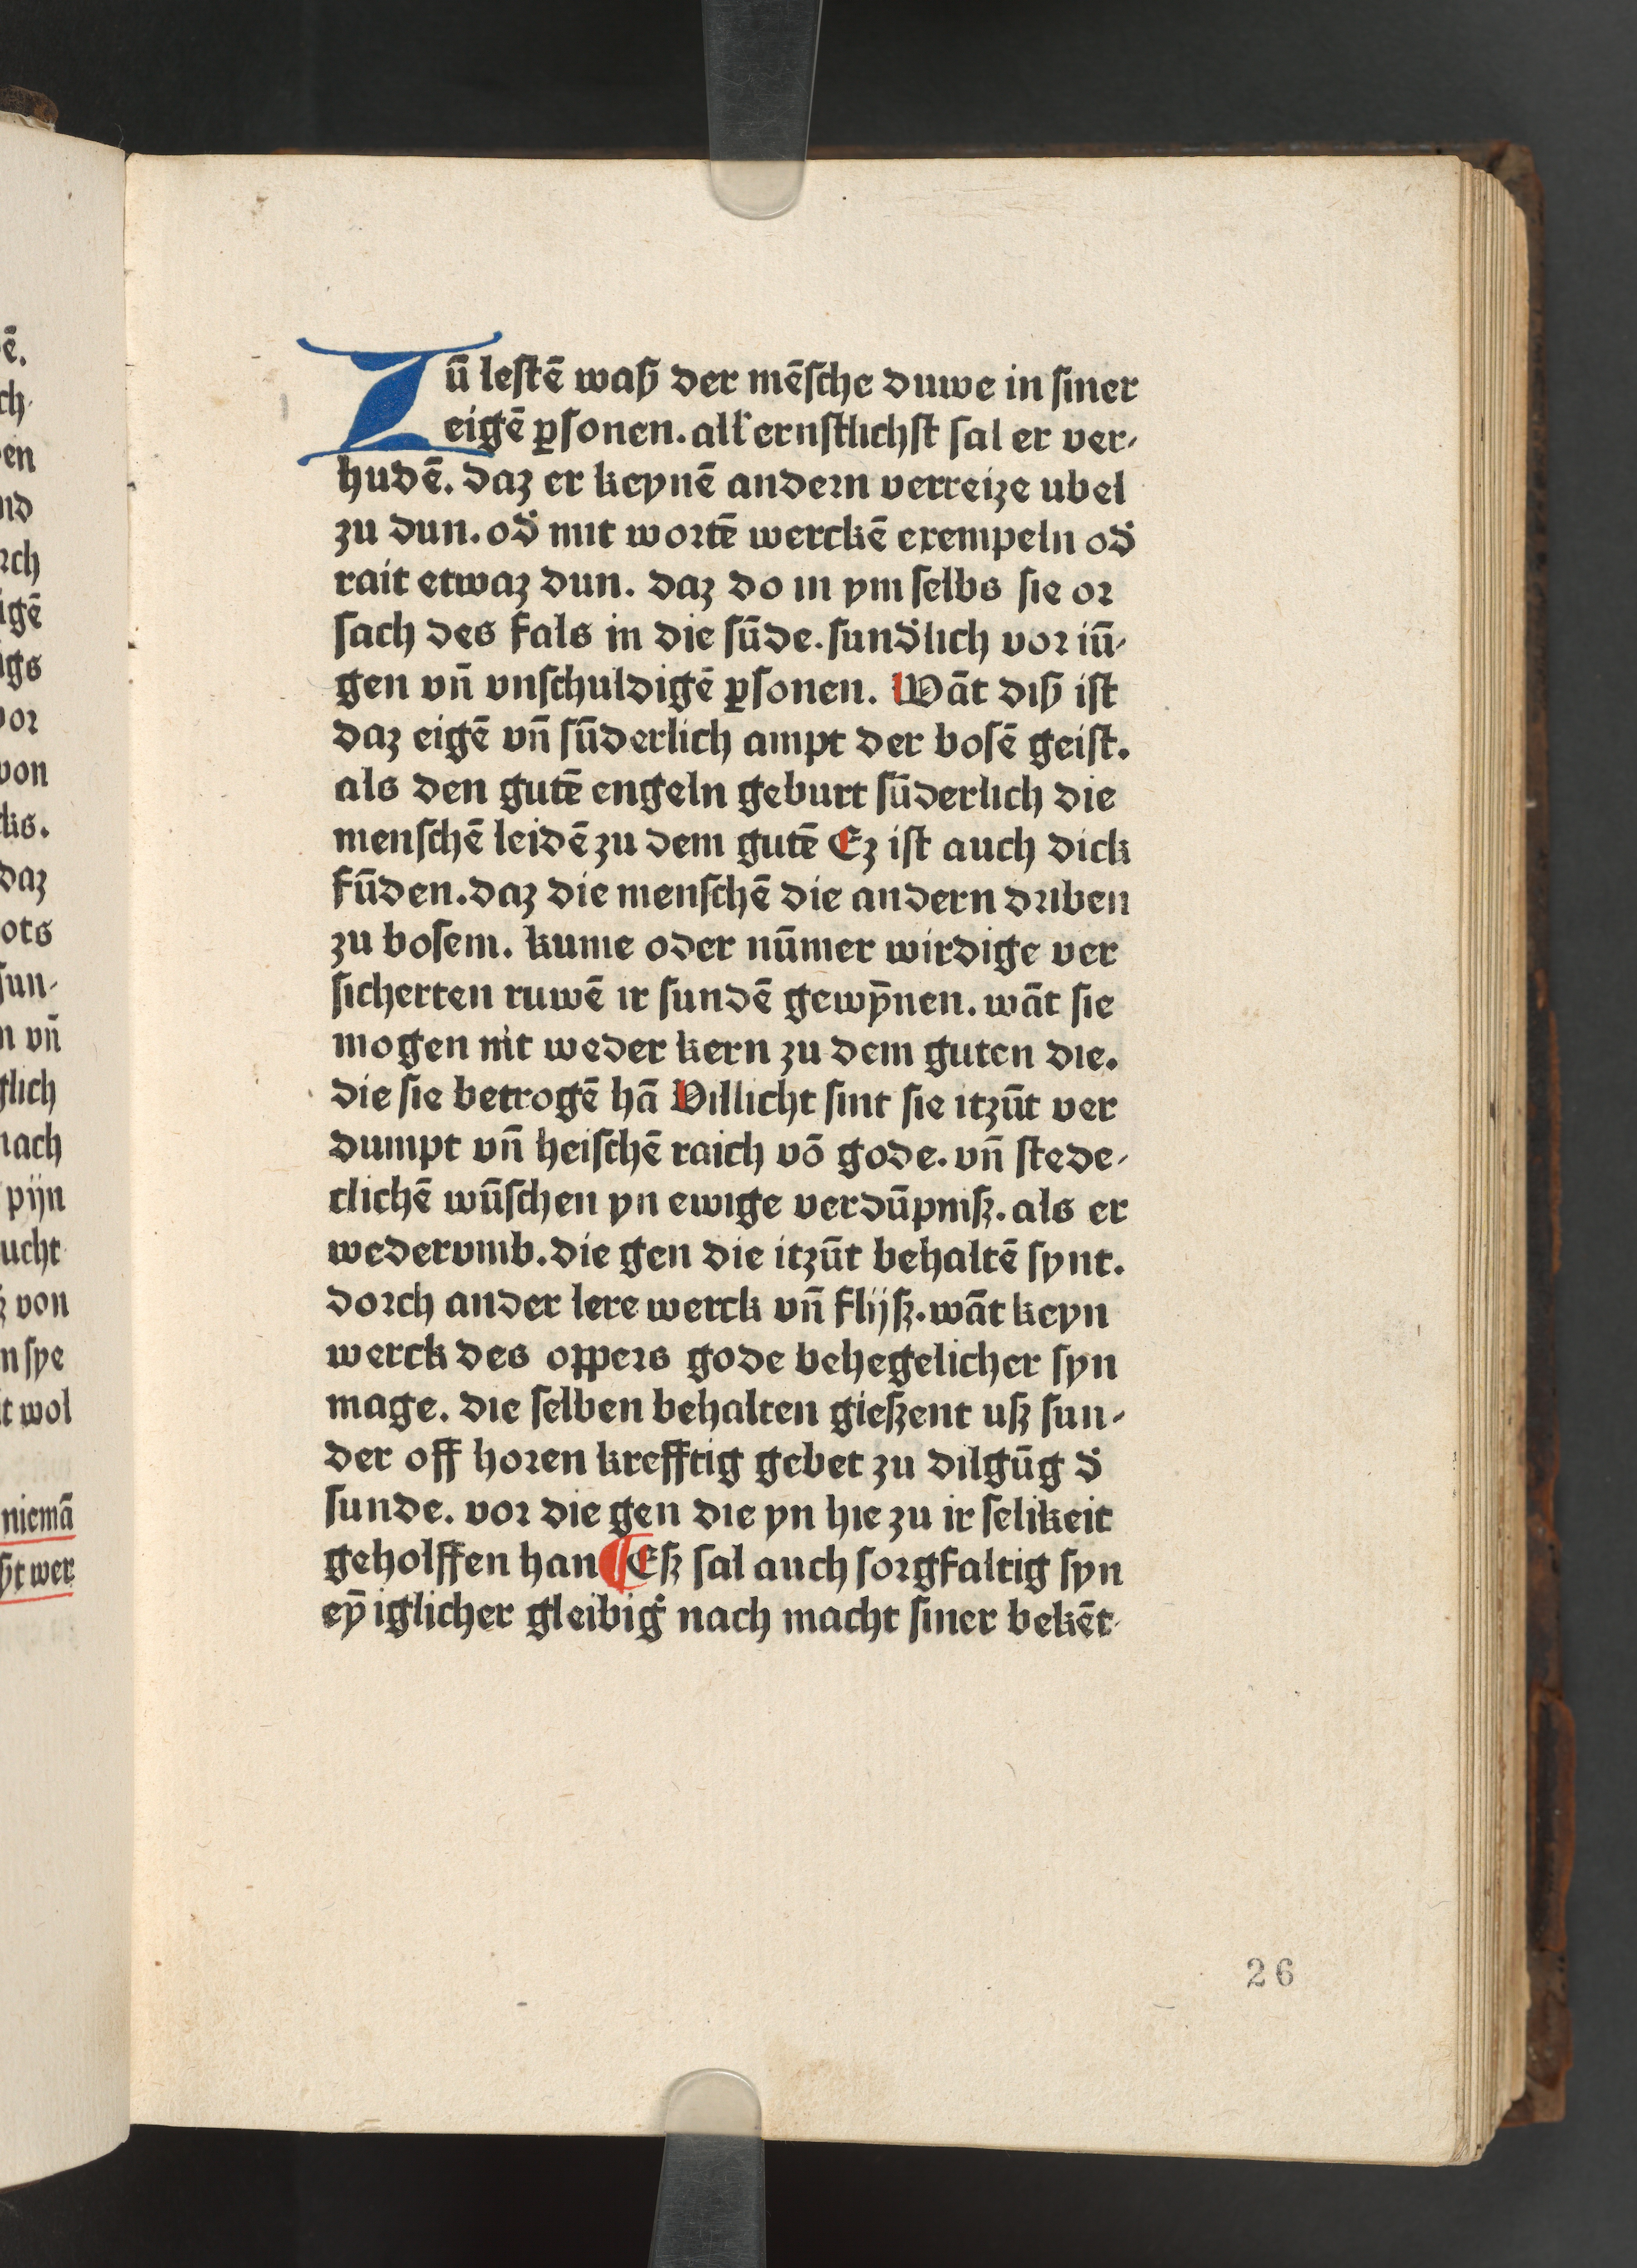 Zū lestē waß der mēsche duwe in siner
eigē ꝑsonen. all̛ ernstlichst sal er ver-
hudē. daz er keynē andern verreize ubel
zu dun. od̛ mit wortē werckē exempeln od̛
rait etwaz dun. daz do in ym selbs sie or
sach des fals in die sūde. sund̛lich vor iū-
gen vn̄ vnschuldigē ꝑsonen. Wāt diß ist
daz eigē vn̄ sūderlich ampt der bosē geist.
als den gutē engeln geburt sūderlich die
menschē leidē zu dem gutē Ez ist auch dick
fūden. daz die menschē die andern driben
zu bosem. kume oder nūmer wirdige ver
sicherten ruwē ir sundē gewȳnen. wāt sie
mogen nit weder kern zu dem guten die.
die sie betrogē hā Villicht sint sie itzūt ver
dumpt vn̄ heischē raich vō gode. vn̄ stede-
clichē wūschen yn ewige verdūpnisz. als er
wedervmb. die gen die itzūt behaltē synt.
dorch ander lere werck vn̄ flijsz. wāt keyn
werck des oppers gode behegelicher syn
mage. die selben behalten gieszent usz sun-
der off horen krefftig gebet zu dilgūg d̛
sunde. vor die gen die yn hie zu ir selikeit
geholffen han ¶ Esz sal auch sorgfaltig syn
eȳ iglicher gleibig̛ nach macht siner bekēt-
26